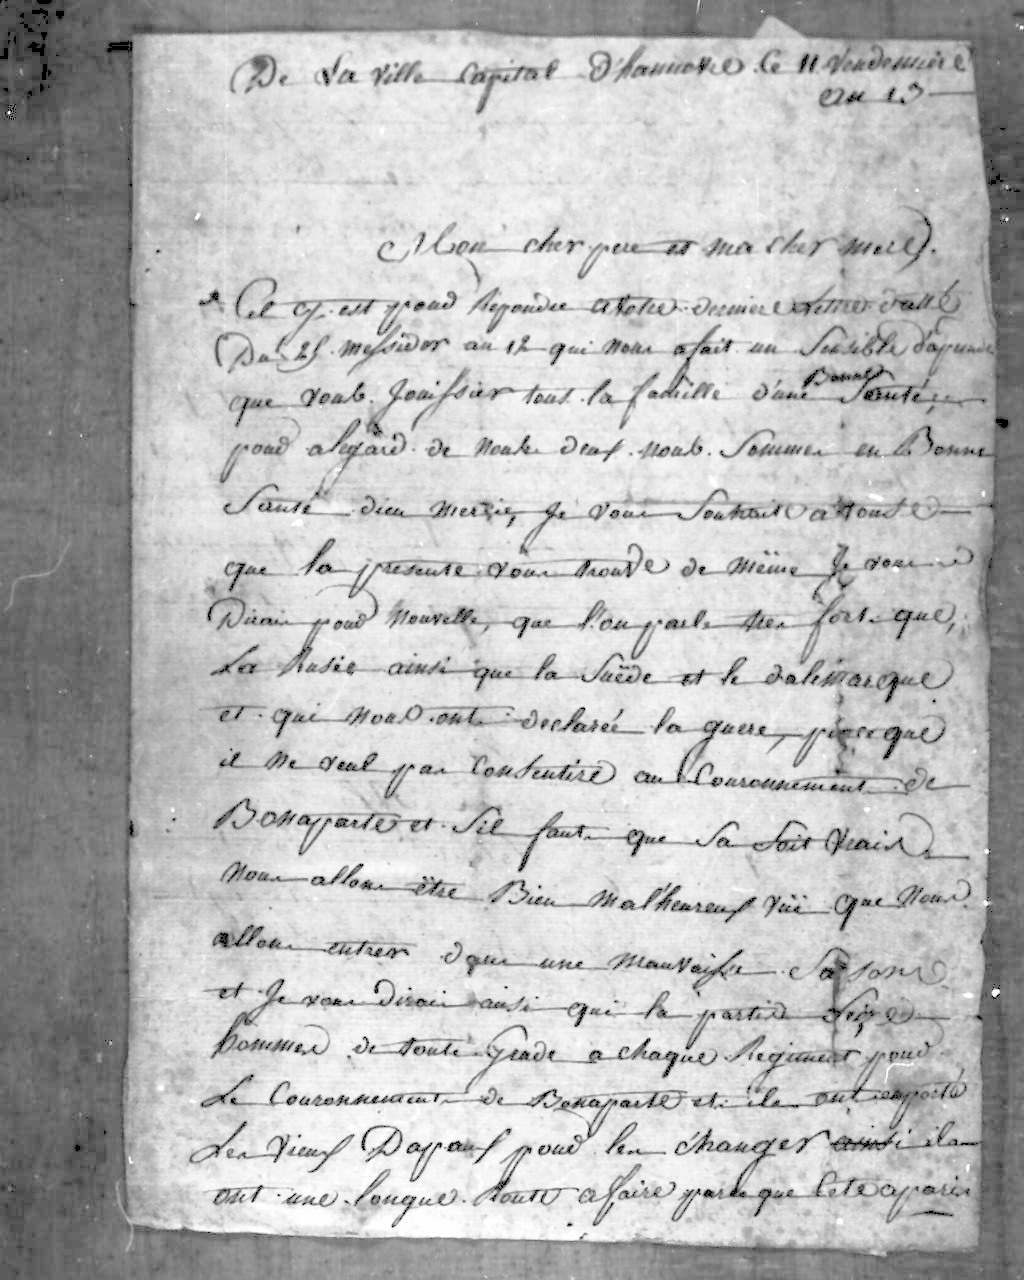 De La ville Capital D'hannovre Ce 11 Vendemiere
An 13
Mon cher pere et ma cher mere
Cel cy est pour Repondre a votre derniere lettre datté
Du 25 messidor an 12 qui nous a fait un Sensible
que vous Jouissier tous la famille d'une Bonne Santé,
pour a legard de nous deux nous Sommes en Bonne
Santé dieu mercie, Je vous Souhaite a tous
que la presente vous trouve de même Je vous
Dirai pour Nouvelle, que l'on parle tres fort que,
La Rusie ainsi que la Suëde et le dalemarque
et qui nous ont declarée la guere, parce que
il ne veul pas Consentire au Couronnement de
Bonaparte et Sil faut que Sa Soit Vrais
Nous allons être Bien Malheureux vüe que Nous
allons entrer dans une Mauvaisse Saisons
et Je vous dirai ainsi qui la partie
hommes de toute Grade a chaque Regiment pour
Le Couronnement de Bonaparte et ils ont emporté
Les vieux Dapaux pour les changer ainsi ils
ont une longue Route a faire parce que Cete a paris